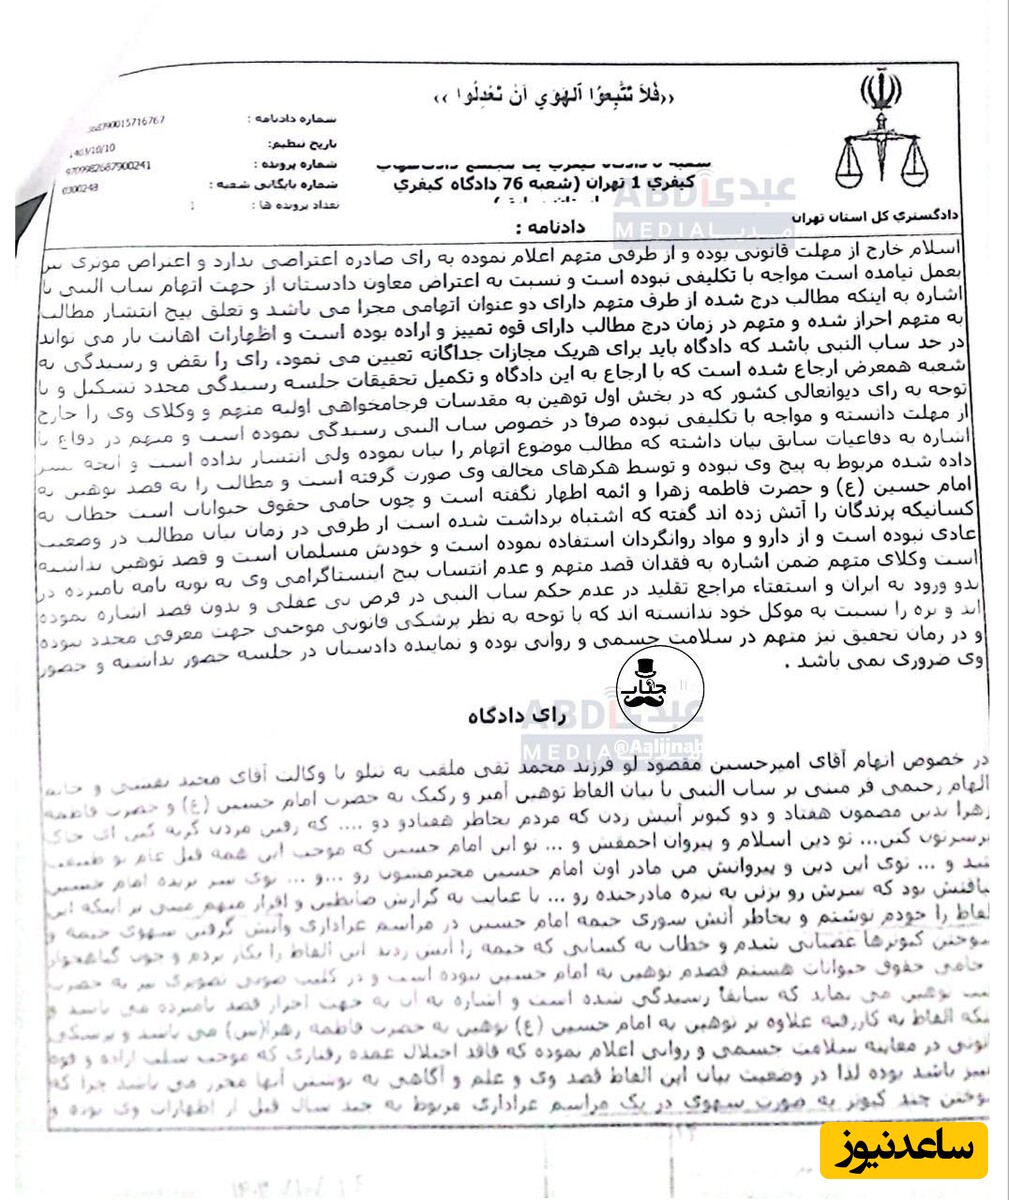 ««فَلاَ تَتَّبِعُوا الْهَوَي اَنْ تَعْدِلُوا »»
شماره دادنامه : 790015716767
تاریخ تنظیم: 1403/10/10
شماره پرونده : 9709982687900241
کیفری 1 تهران (شعبه 76 دادگاه کیفری
شماره بایگانی شعبه : 0300248
تعداد پرونده ها : 1
دادگستری کل استان تهران
دادنامه :
عبدی ABDI
MEDIA مدیا
اسلام خارج از مهلت قانونی بوده و از طرفی متهم اعلام نموده به رای صادره اعتراضی ندارد و اعتراض موثری نیز
بعمل نیامده است مواجه با تکلیفی نبوده است و نسبت به اعتراض معاون دادستان از جهت اتهام ساب النبی با
اشاره به اینکه مطالب درج شده از طرف متهم دارای دو عنوان اتهامی مجزا می باشد و تعلق پیج انتشار مطالب
به متهم احراز شده و متهم در زمان درج مطالب دارای قوه تمییز و اراده بوده است و اظهارات اهانت بار می تواند
در حد ساب النبی باشد که دادگاه باید برای هریک مجازات جداگانه تعیین می نمود، رای را نقض و رسیدگی به
شعبه همعرض ارجاع شده است که با ارجاع به این دادگاه و تکمیل تحقیقات جلسه رسیدگی مجدد تشکیل و با
توجه به رای دیوانعالی کشور که در بخش اول توهین به مقدسات فرجامخواهی اولیه متهم و وکلای وی را خارج
از مهلت دانسته و مواجه با تکلیفی نبوده صرفا در خصوص ساب النبی رسیدگی نموده است و متهم در دفاع با
اشاره به دفاعیات سابق بیان داشته که مطالب موضوع اتهام را بیان نموده ولی انتشار نداده است و آنچه نشر
داده شده مربوط به پیج وی نبوده و توسط هکرهای مخالف وی صورت گرفته است و مطالب را به قصد توهین به
امام حسین (ع) و حضرت فاطمه زهرا و ائمه اظهار نگفته است و چون حامی حقوق حیوانات است خطاب به
کسانیکه پرندگان را آتش زده اند گفته که اشتباه برداشت شده است از طرفی در زمان بیان مطالب در وضعیت
عادی نبوده است و از دارو و مواد روانگردان استفاده نموده است و خودش مسلمان است و قصد توهین نداشته
است وکلای متهم ضمن اشاره به فقدان قصد متهم و عدم انتساب پیج اینستاگرامی وی به توبه نامه نامبرده در
بدو ورود به ایران و استفتاء مراجع تقلید در عدم حکم ساب النبی در فرض بی عقلی و بدون قصد اشاره نموده
اند و بزه را نسبت به موکل خود ندانسته اند که با توجه به نظر پزشکی قانونی موجبی جهت معرفی مجدد نبوده
و در زمان تحقیق نیز متهم در سلامت جسمی و روانی بوده و نماینده دادستان در جلسه حضور نداشته و حضور
وی ضروری نمی باشد .
جناب
عبدی ABDI
MEDIA مدیا
@Aalijnab
رای دادگاه
در خصوص اتهام آقای امیرحسین مقصود لو فرزند محمد تقی ملقب به تتلو با وکالت آقای مجید نقشی و خانم
الهام رحیمی فر مبنی بر ساب النبی با بیان الفاظ توهین آمیز و رکیک به حضرت امام حسین (ع) و حضرت فاطمه
زهرا بدین مضمون هفتاد و دو کبوتر آتیش زدن که مردم بخاطر هفتادو دو .... که رفتن مردن گریه کنن ای خاک
برسرتون کنن... تو دین اسلام و پیروان احمقش و ... تو این امام حسین که موجب این همه قتل عام تو طبیعت
شید و ... توی این دین و پیروانش من مادر اون امام حسین محترمتون رو ...و ... توی سر بریده امام حسین
یاقتش بود که سرش رو بزنن به نیزه مادرجنده رو ... با عنایت به گزارش ضابطین و اقرار متهم مبنی بر اینکه این
لفاظ را خودم نوشتم و بخاطر آتش سوزی خیمه امام حسین در مراسم عزاداری وآتش گرفتن سهوی خیمه و
سوختن کبوترها عصبانی شدم و خطاب به کسانی که خیمه را آتش زدند این الفاظ را بکار بردم و چون گیاهخوار
حامی حقوق حیوانات هستم قصدم توهین به امام حسین نبوده است و در کلیپ صوتی تصویری نیز به حضرت
توهین می نماید که سابقا رسیدگی شده است و اشاره به آن به جهت احراز قصد نامبرده می باشد و
ینکه الفاظ به کاررفته علاوه بر توهین به امام حسین (ع) توهین به حضرت فاطمه زهرا(س) می باشد و پزشکی
انونی در معاینه سلامت جسمی و روانی اعلام نموده که فاقد اختلال عمده رفتاری که موجب سلب اراده و قوه
میز باشد بوده لذا در وضعیت بیان این الفاظ قصد وی و علم و آگاهی به نوشتن آنها محرز می باشد چرا که
سوختن چند کبوتر به صورت سهوی در یک مراسم عزاداری مربوط به چند سال قبل از اظهارات وی بوده و
ساعدنیوز